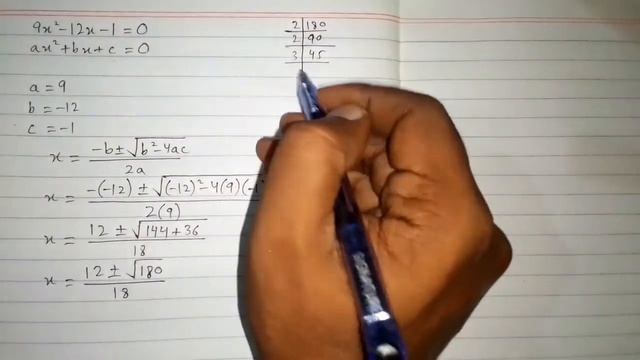 9x²-12x-1=0
ax²+bx+c=0
a=9
b=-12
c=-1
x = -b±√b²-4ac / 2a
x = -(-12) ± √(-12)²-4(9)(-1 / 2(9)
x = 12 ± √144+36 / 18
x = 12 ± √180 / 18
2|180
2|90
3|45